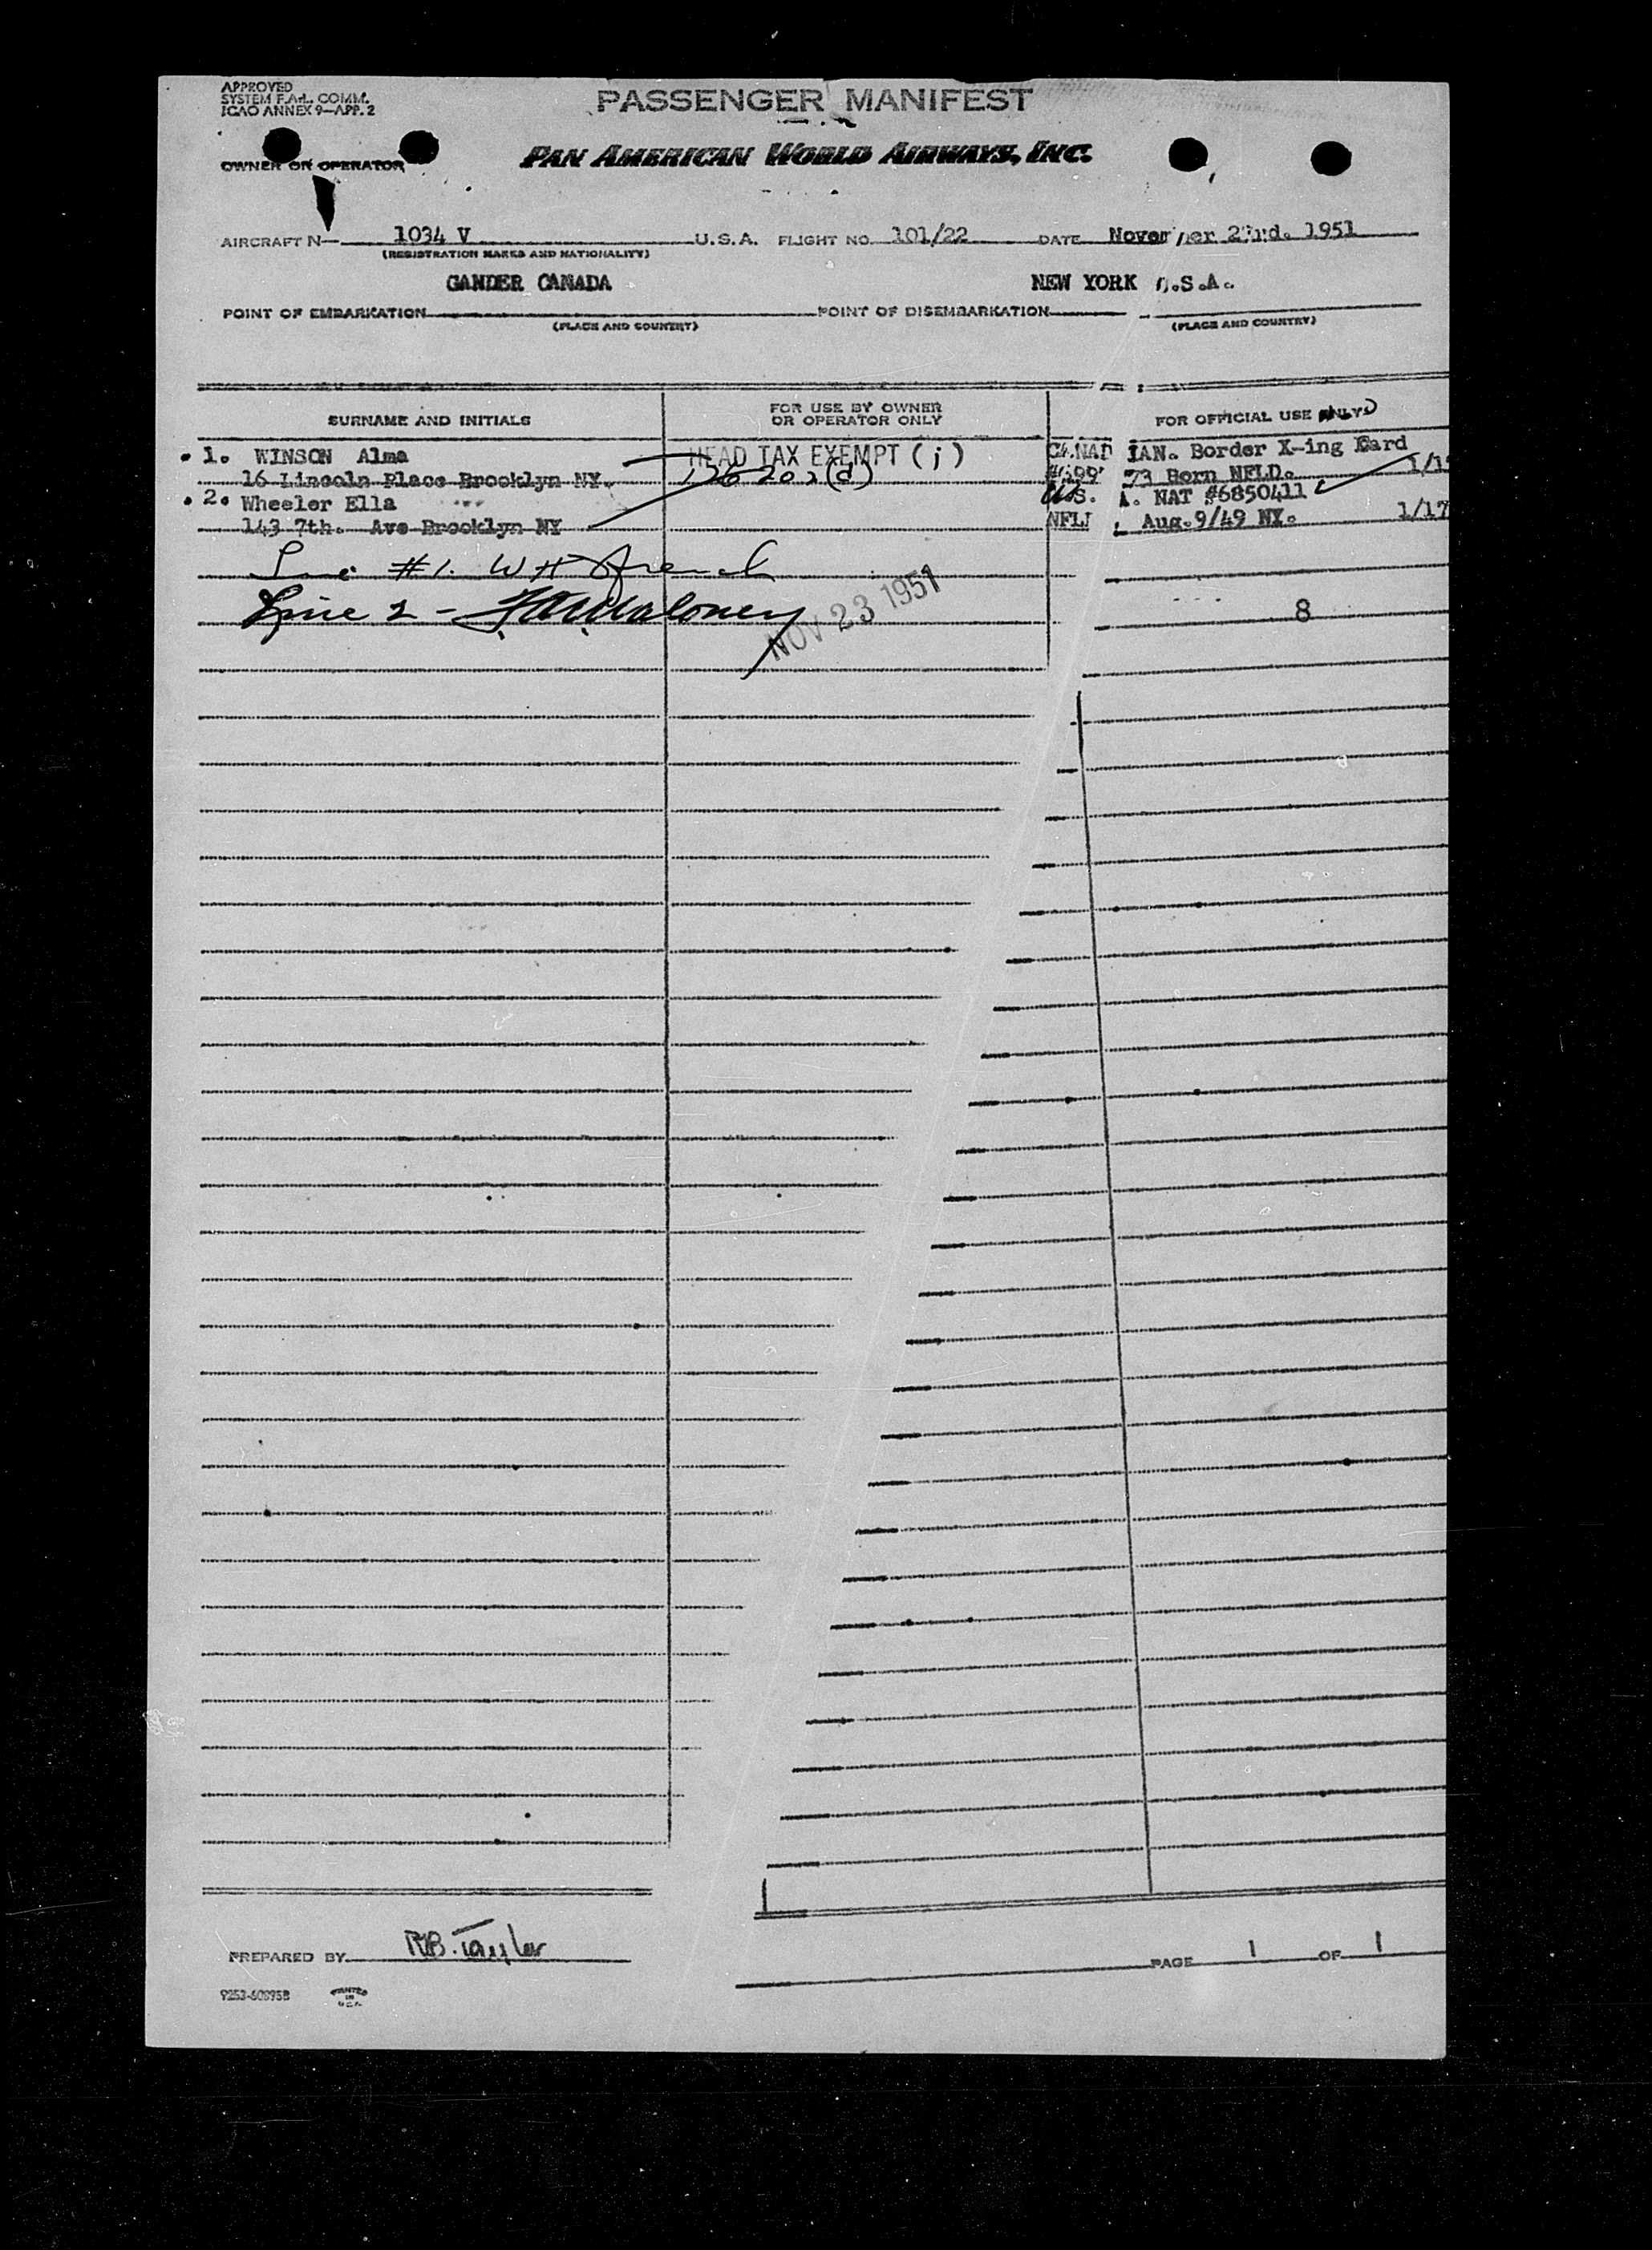 APPROVED
SYSTEM F.A.L. COMM.
ICAO ANNEX 9—APP. 2
PASSENGER MANIFEST
OWNER OR OPERATOR
PAN AMERICAN WORLD AIRWAYS, INC.
AIRCRAFT N— 1034 V U.S.A. FLIGHT NO. 101/22 DATE 1951
(REGISTRATION MARKS AND NATIONALITY)
GANDER CANADA NEW YORK .S.A.
POINT OF EMBARKATION POINT OF DISEMBARKATION
(PLACE AND COUNTRY) (PLACE AND COUNTRY)
SURNAME AND INITIALS
FOR USE BY OWNER
OR OPERATOR ONLY
FOR OFFICIAL USE ONLY
1. WINSON Alma HEAD TAX EXEMPT (j) CANAD IAN. Border X-ing Card
16 Lincoln Place Brooklyn NY. 73 Born NFLD.
2. Wheeler Ella U.S. A. NAT #6850411
143 7th. Ave Brooklyn NY NFLD. Aug. 9/49 NY. 1/17
Line #1. W H French
Line 2 - Maloney 8
NOV 23 1951
PREPARED BY R.B. Taylor PAGE 1 OF 1
PRINTED
IN
U.S.A.